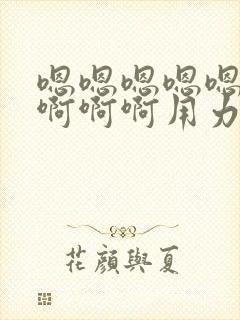 嗯嗯嗯嗯嗯
啊啊啊用力
花顏與夏